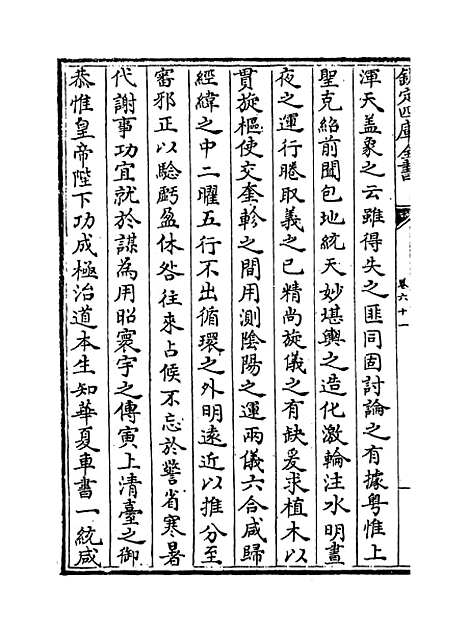 欽定四庫全書
卷六十一
渾天盖象之云雖得失之匪同固討論之有據粤惟上
聖克紹前聞包地統天妙堪輿之造化激輪注水明晝
夜之運行賸取義之已精尚旋儀之有缺爰求植木以
貫旋樞使交奎軫之間用測隂陽之運兩儀六合咸歸
經緯之中二曜五行不出循環之外明遠近以推分至
審邪正以驗虧盈休咎往來占候不忘於警省寒暑
代謝事功宜就於謀為用昭寰宇之傳寅上清臺之御
恭惟皇帝陛下功成極治道本生知華夏車書一統咸